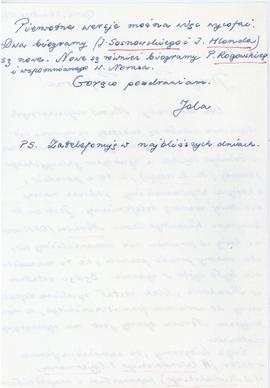 Pierwotne wersje można więc wycofać.
Dwa biogramy (J. Sosnowskiego i J. Hlonda)
są nowe. Nowe są również biogramy P. Rogowskiego
i wspomnianego W. Norasa.
Gorąco pozdrawiam.
Jola
PS. Zatelefonuję w najbliższych dniach.